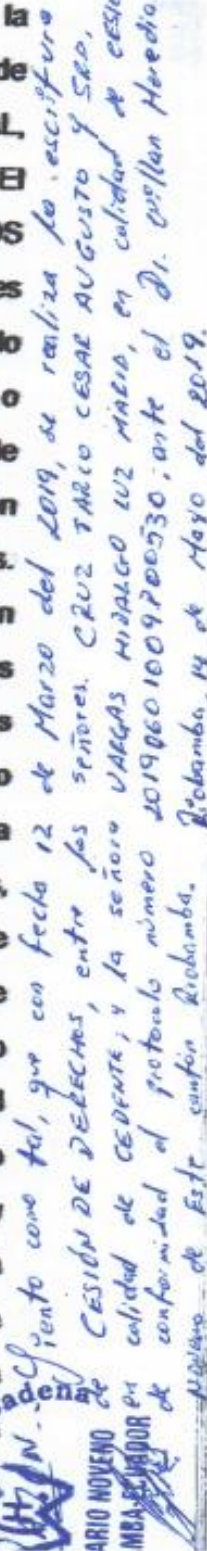 Siento como tal, que con fecha 12 de Marzo del 2019, se realiza la escritura
CESIÓN DE DERECHOS, entre los señores. CRUZ TARCO CESAR AUGUSTO y SRA,
en calidad de CEDENTE; y la señora VARGAS HIDALGO LUZ MARIA, en calidad de cesio
de conformidad al protocolo número 20190601009P00530; ante el Dr. William Heredia
Notario de Este cantón Riobamba. Riobamba, 14 de Mayo del 2019.
adena
ARIO NOVENO
MBA-ECUADOR
la
de
L,
El
OS
es
do
o
de
n
s.
n
s
s
o
a